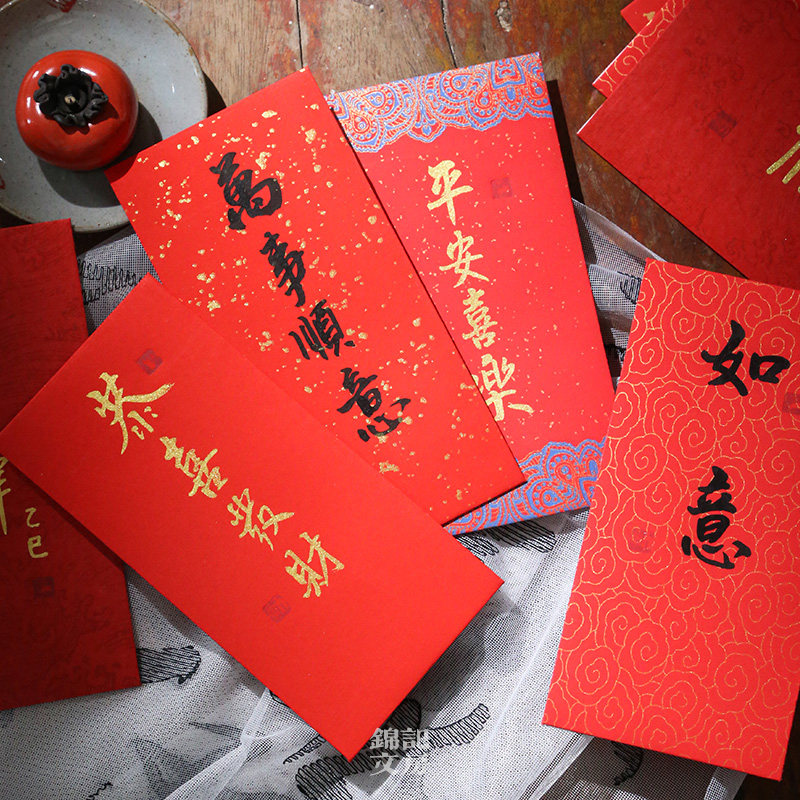 萬事順意
平安喜樂
恭喜發財
如意
乙巳
錦記